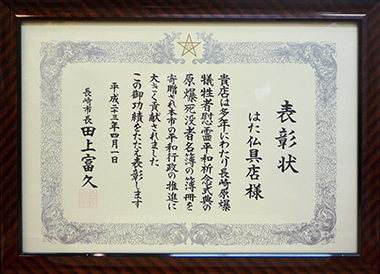 表彰状
はた仏具店様
貴店は多年にわたり長崎原爆
犠牲者慰霊平和祈念式典の
原爆死没者名簿の簿冊を
寄贈され本市の平和行政の推進に
大きく貢献されました
この御功績をたたえ表彰します
平成二十三年四月一日
長崎市長 田上富久